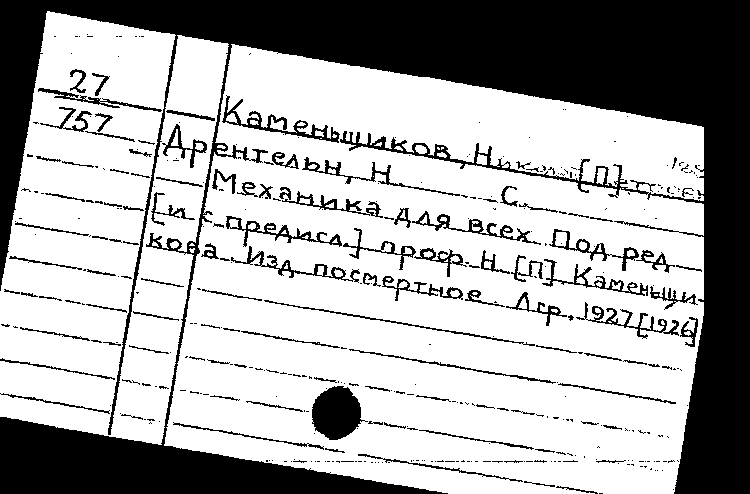 27
757
Каменьщиков, Николай [П]етрович
Дрентельн, Н. С.
Механика для всех. Под ред.
[и с предисл.] проф. Н. [П]. Каменьщи-
кова. Изд. посмертное. Лгр. 1927 [1926]